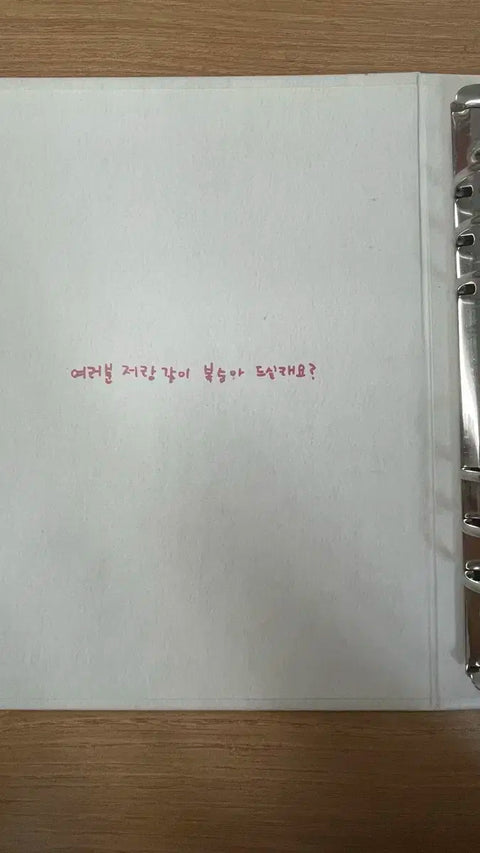 여러분 저랑 같이 복숭아 드실래요?